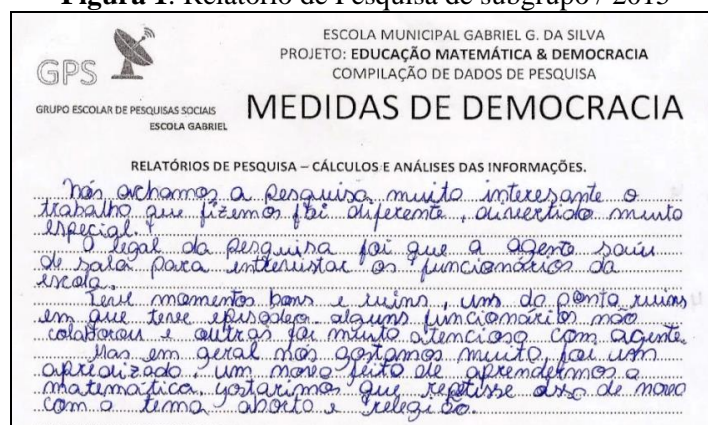 Figura 1: Relatório de Pesquisa de subgrupo / 2015
GPS
GRUPO ESCOLAR DE PESQUISAS SOCIAIS
ESCOLA GABRIEL
ESCOLA MUNICIPAL GABRIEL G. DA SILVA
PROJETO: EDUCAÇÃO MATEMÁTICA & DEMOCRACIA
COMPILAÇÃO DE DADOS DE PESQUISA
MEDIDAS DE DEMOCRACIA
RELATÓRIOS DE PESQUISA – CÁLCULOS E ANÁLISES DAS INFORMAÇÕES.
nós archamos a pesquisa muito interesante o
trabalho que fizemos foi diferente, divertido muito
especial.
O legal da pesquisa foi que a agente saiu
de sala para entrevistar os funcionários da
escola.
Teve momentos bons e ruins, uns do ponto ruins
em que teve episodeo alguns funcionarios não
colaborou e outras foi muito atencioso com agente
Mas em geral nós gostamos muito, foi um
apredizado um novo jeito de aprendermos a
matematica. gostarimos que repetisse isso de novo
com o tema aborto e relegião.